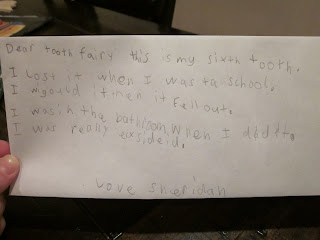 Dear tooth fairy this is my sixth tooth.
I Lost it when I was ta school.
I wgould it then it fell out.
I was in the bathroom when I did it.
I was really exsideid.
Love Sheridan